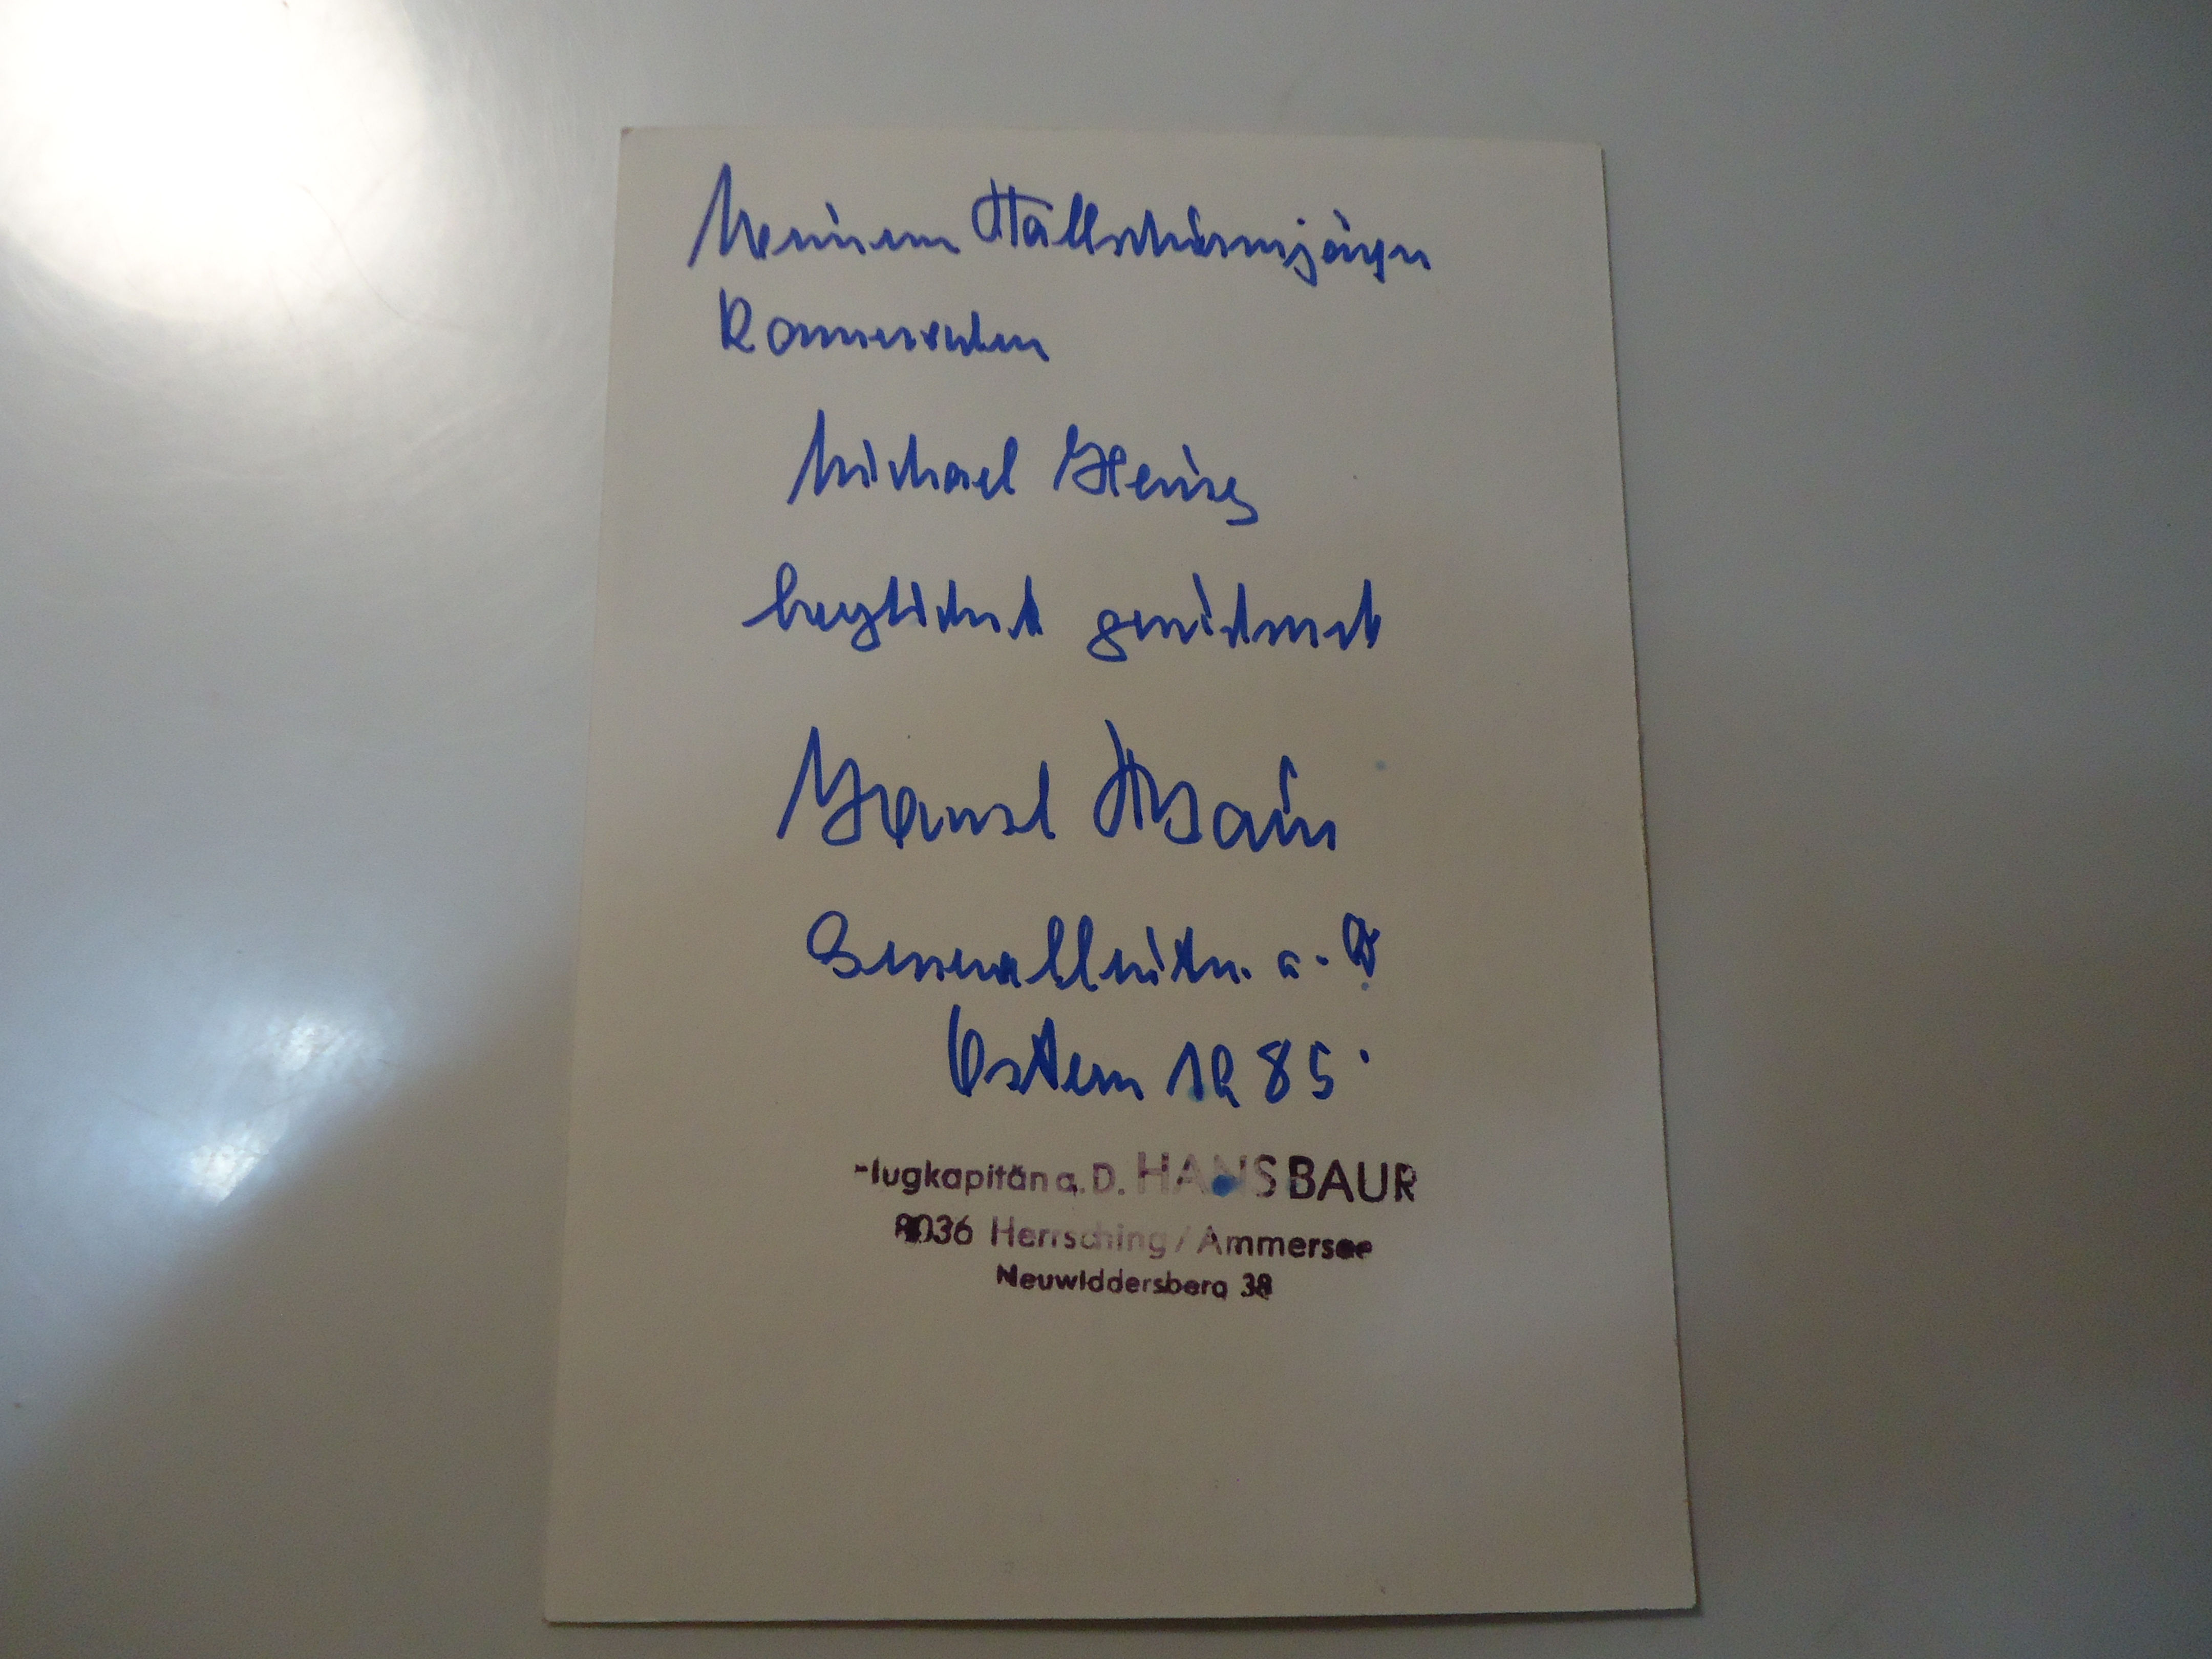 Meinem Fallschirmjäger
Kameraden
Michael Heinz
herzlichst gewidmet
Hansl Baur
Generalleutn. a. D.
Ostern 1985.
Flugkapitän a. D. HANS BAUR
8036 Herrsching / Ammersee
Neuwiddersberg 38